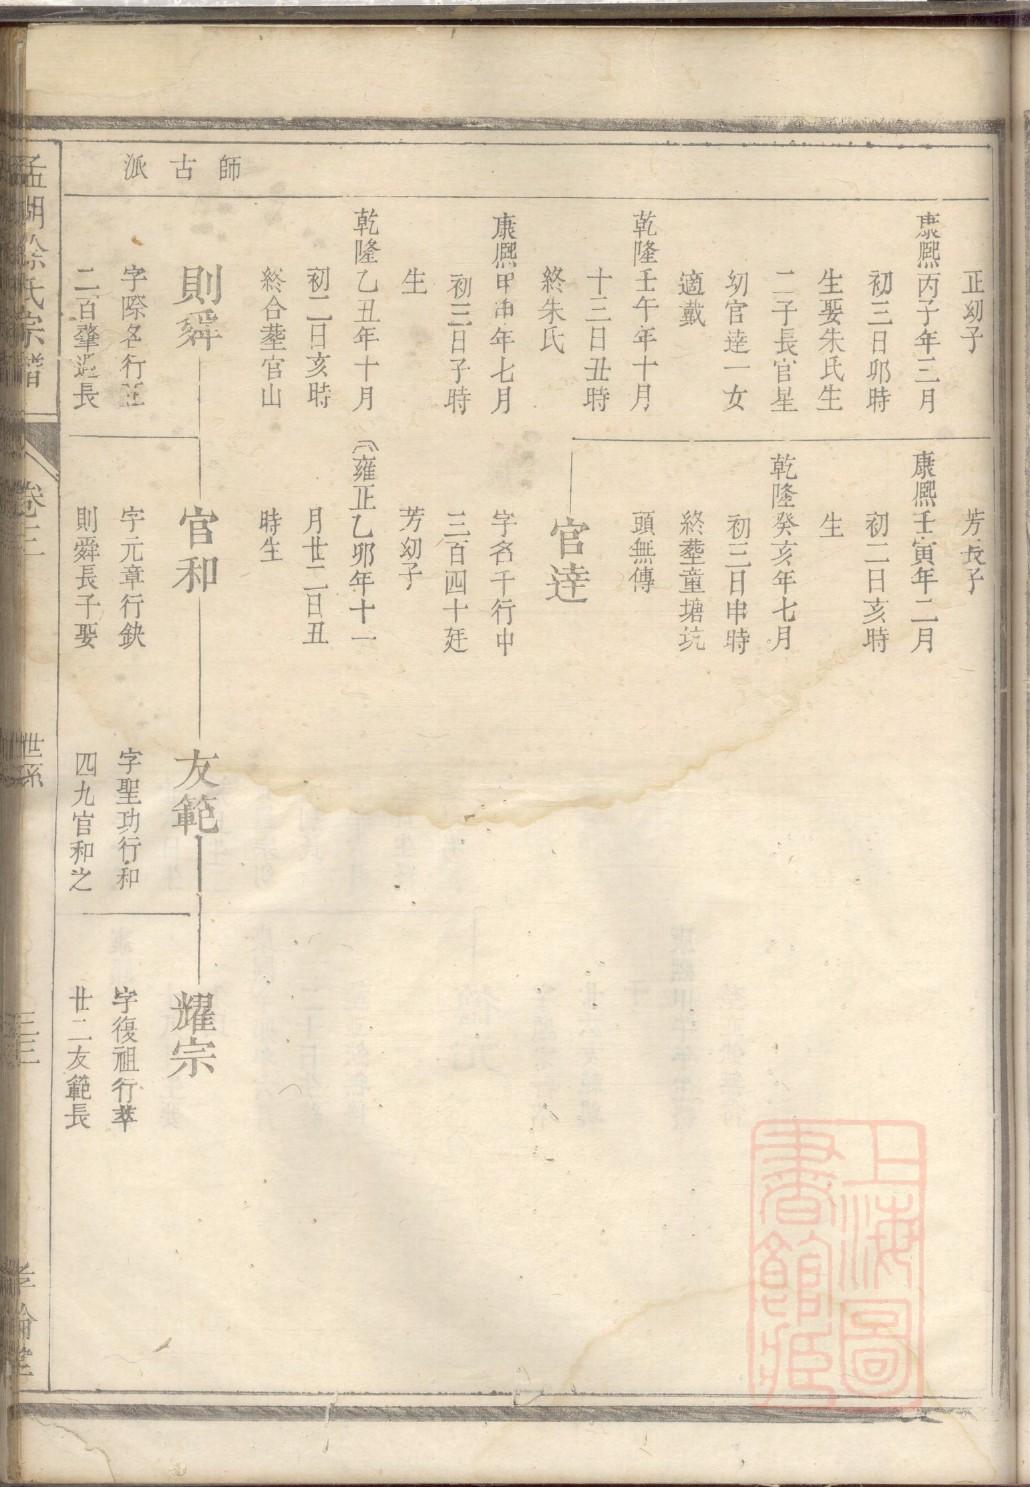 師古派
正幼子
康熙丙子年三月
初三日卯時
生娶朱氏生
二子長官星
幼官逹一女
適戴
乾隆壬午年十月
十三日丑時
終朱氏
康熙甲申年七月
初三日子時
生
乾隆乙丑年十月
初二日亥時
終合塟官山
則舜
字際名行
二百肇遠長
芳長子
康熙壬寅年二月
初二日亥時
生
乾隆癸亥年七月
初三日申時
終塟童塘坑
頭無傳
官逹
字名千行中
三百四十廷
芳幼子
雍正乙卯年十一
月廿二日丑
時生
官和
字元章行鈌
則舜長子娶
友範
字聖功行和
四九官和之
耀宗
字復祖行萃
廿二友範長
孟湖徐氏宗譜
卷三
世系
三三
孝倫堂
上海圖書館藏